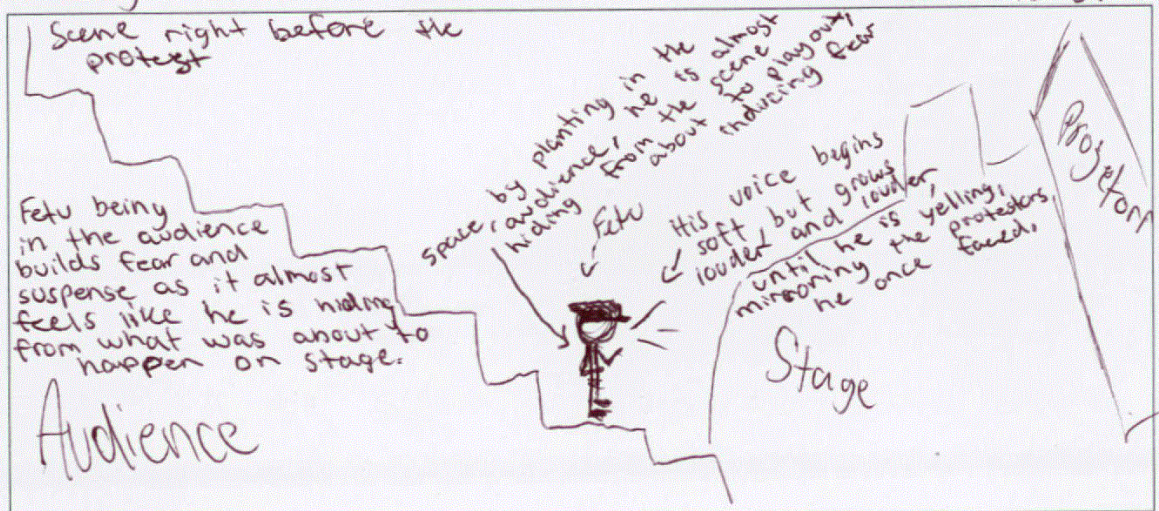 Scene right before the
protest
Fetu being
in the audience
builds fear and
suspense as it almost
feels like he is hiding
from what was about to
happen on stage.
Audience
by planting in the
space, audience, he is almost
hiding from the scene
about to playout,
inducing fear
Fetu
His voice begins
soft, but grows
louder and louder,
until he is yelling,
mirroring the protestors,
he once faced.
Stage